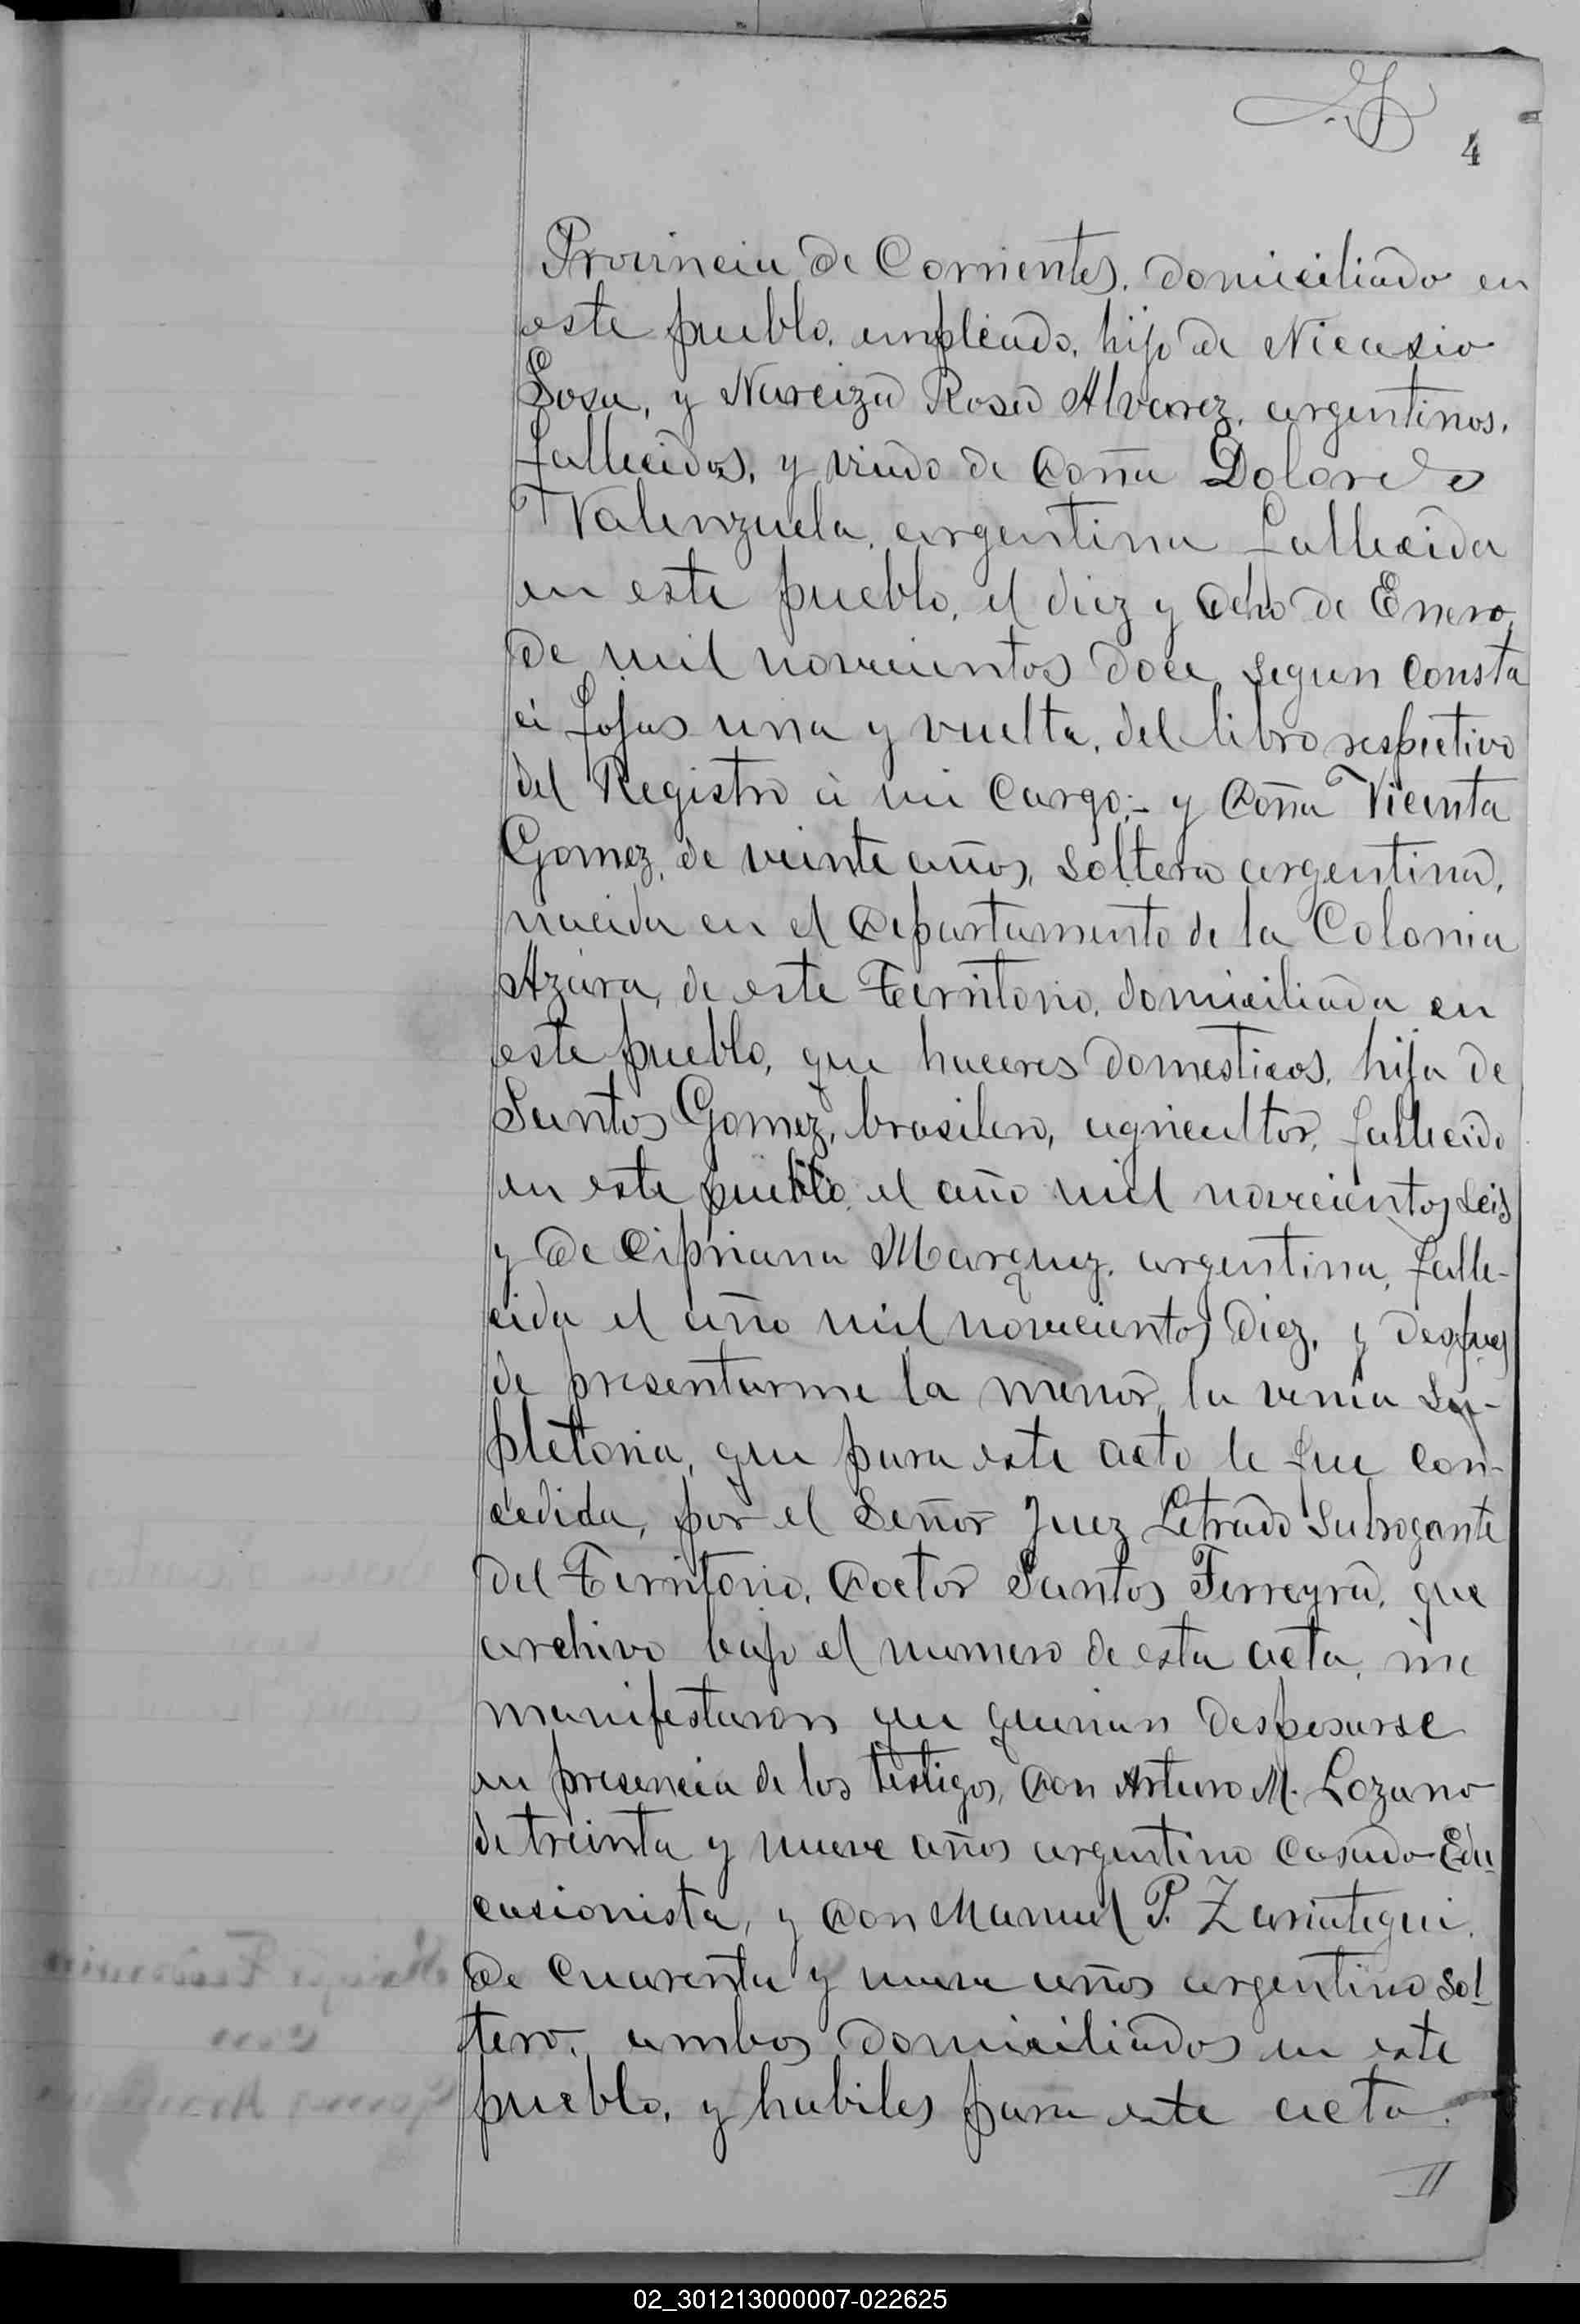 4
Provincia de Corrientes. domiciliado en
este pueblo, empleado, hijo de Nicasio
Sosa, y Narciza Rosa Alvarez, argentinos,
fallecidos, y viudo de Doña Dolores
Valenzuela, argentina fallecida
en este pueblo, el diez y ocho de Enero,
de mil novecientos doce, segun consta
á fojas una y vuelta, del libro respectivo
del Registro á mi cargo;- y Doña Vicenta
Gomez, de veinte años, soltera argentina,
nacida en el Departamento de la Colonia
Azara, de este Territorio, domiciliada en
este pueblo, que haceres domesticos, hija de
Santos Gomez, brasilero, agricultor, fallecido
en este pueblo, el año mil novecientos seis
y de Cipriana Marquez, argentina, falle-
cida el año mil novecientos diez, y despues
de presentarme la menor, la venia su-
pletoria, que para este acto le fue con-
cedida, por el Señor Juez Letrado Subrogante
del Territorio, Doctor Santos Ferreyra, que
archivo bajo el numero de esta acta, me
manifestaron que querian desposarse
en presencia de los testigos, Don Arturo M. Lozano
de treinta y nueve años argentino casado Edu
casionista, y Don Manuel P. Zariategui,
de cuarenta y nueve años argentino sol
tero, ambos domiciliados en este
pueblo, y habiles para este acto.
II
02_301213000007-022625